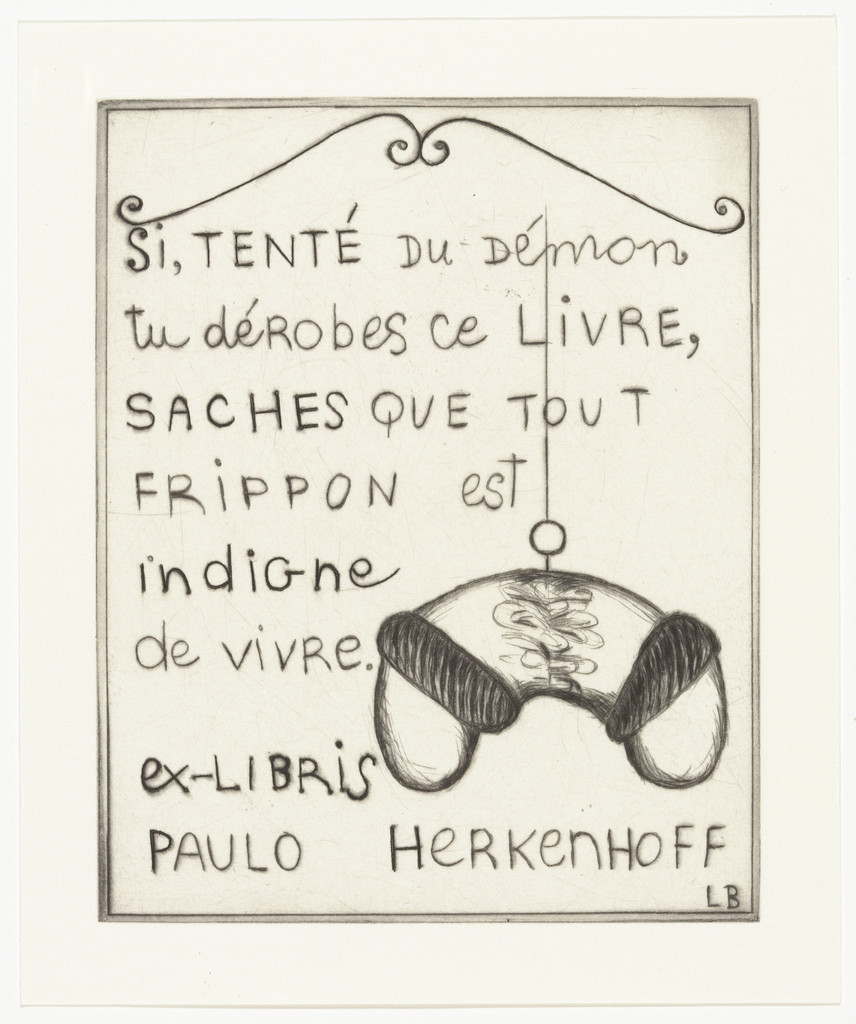 Si, TENTÉ DU DÉMON
tu déRobes ce LiVRE,
SACHES QUE TOUT
FRiPPON est
indiGne
de VIVRE.
ex-LIBRiS
PAULO HeRKenHOFF
LB